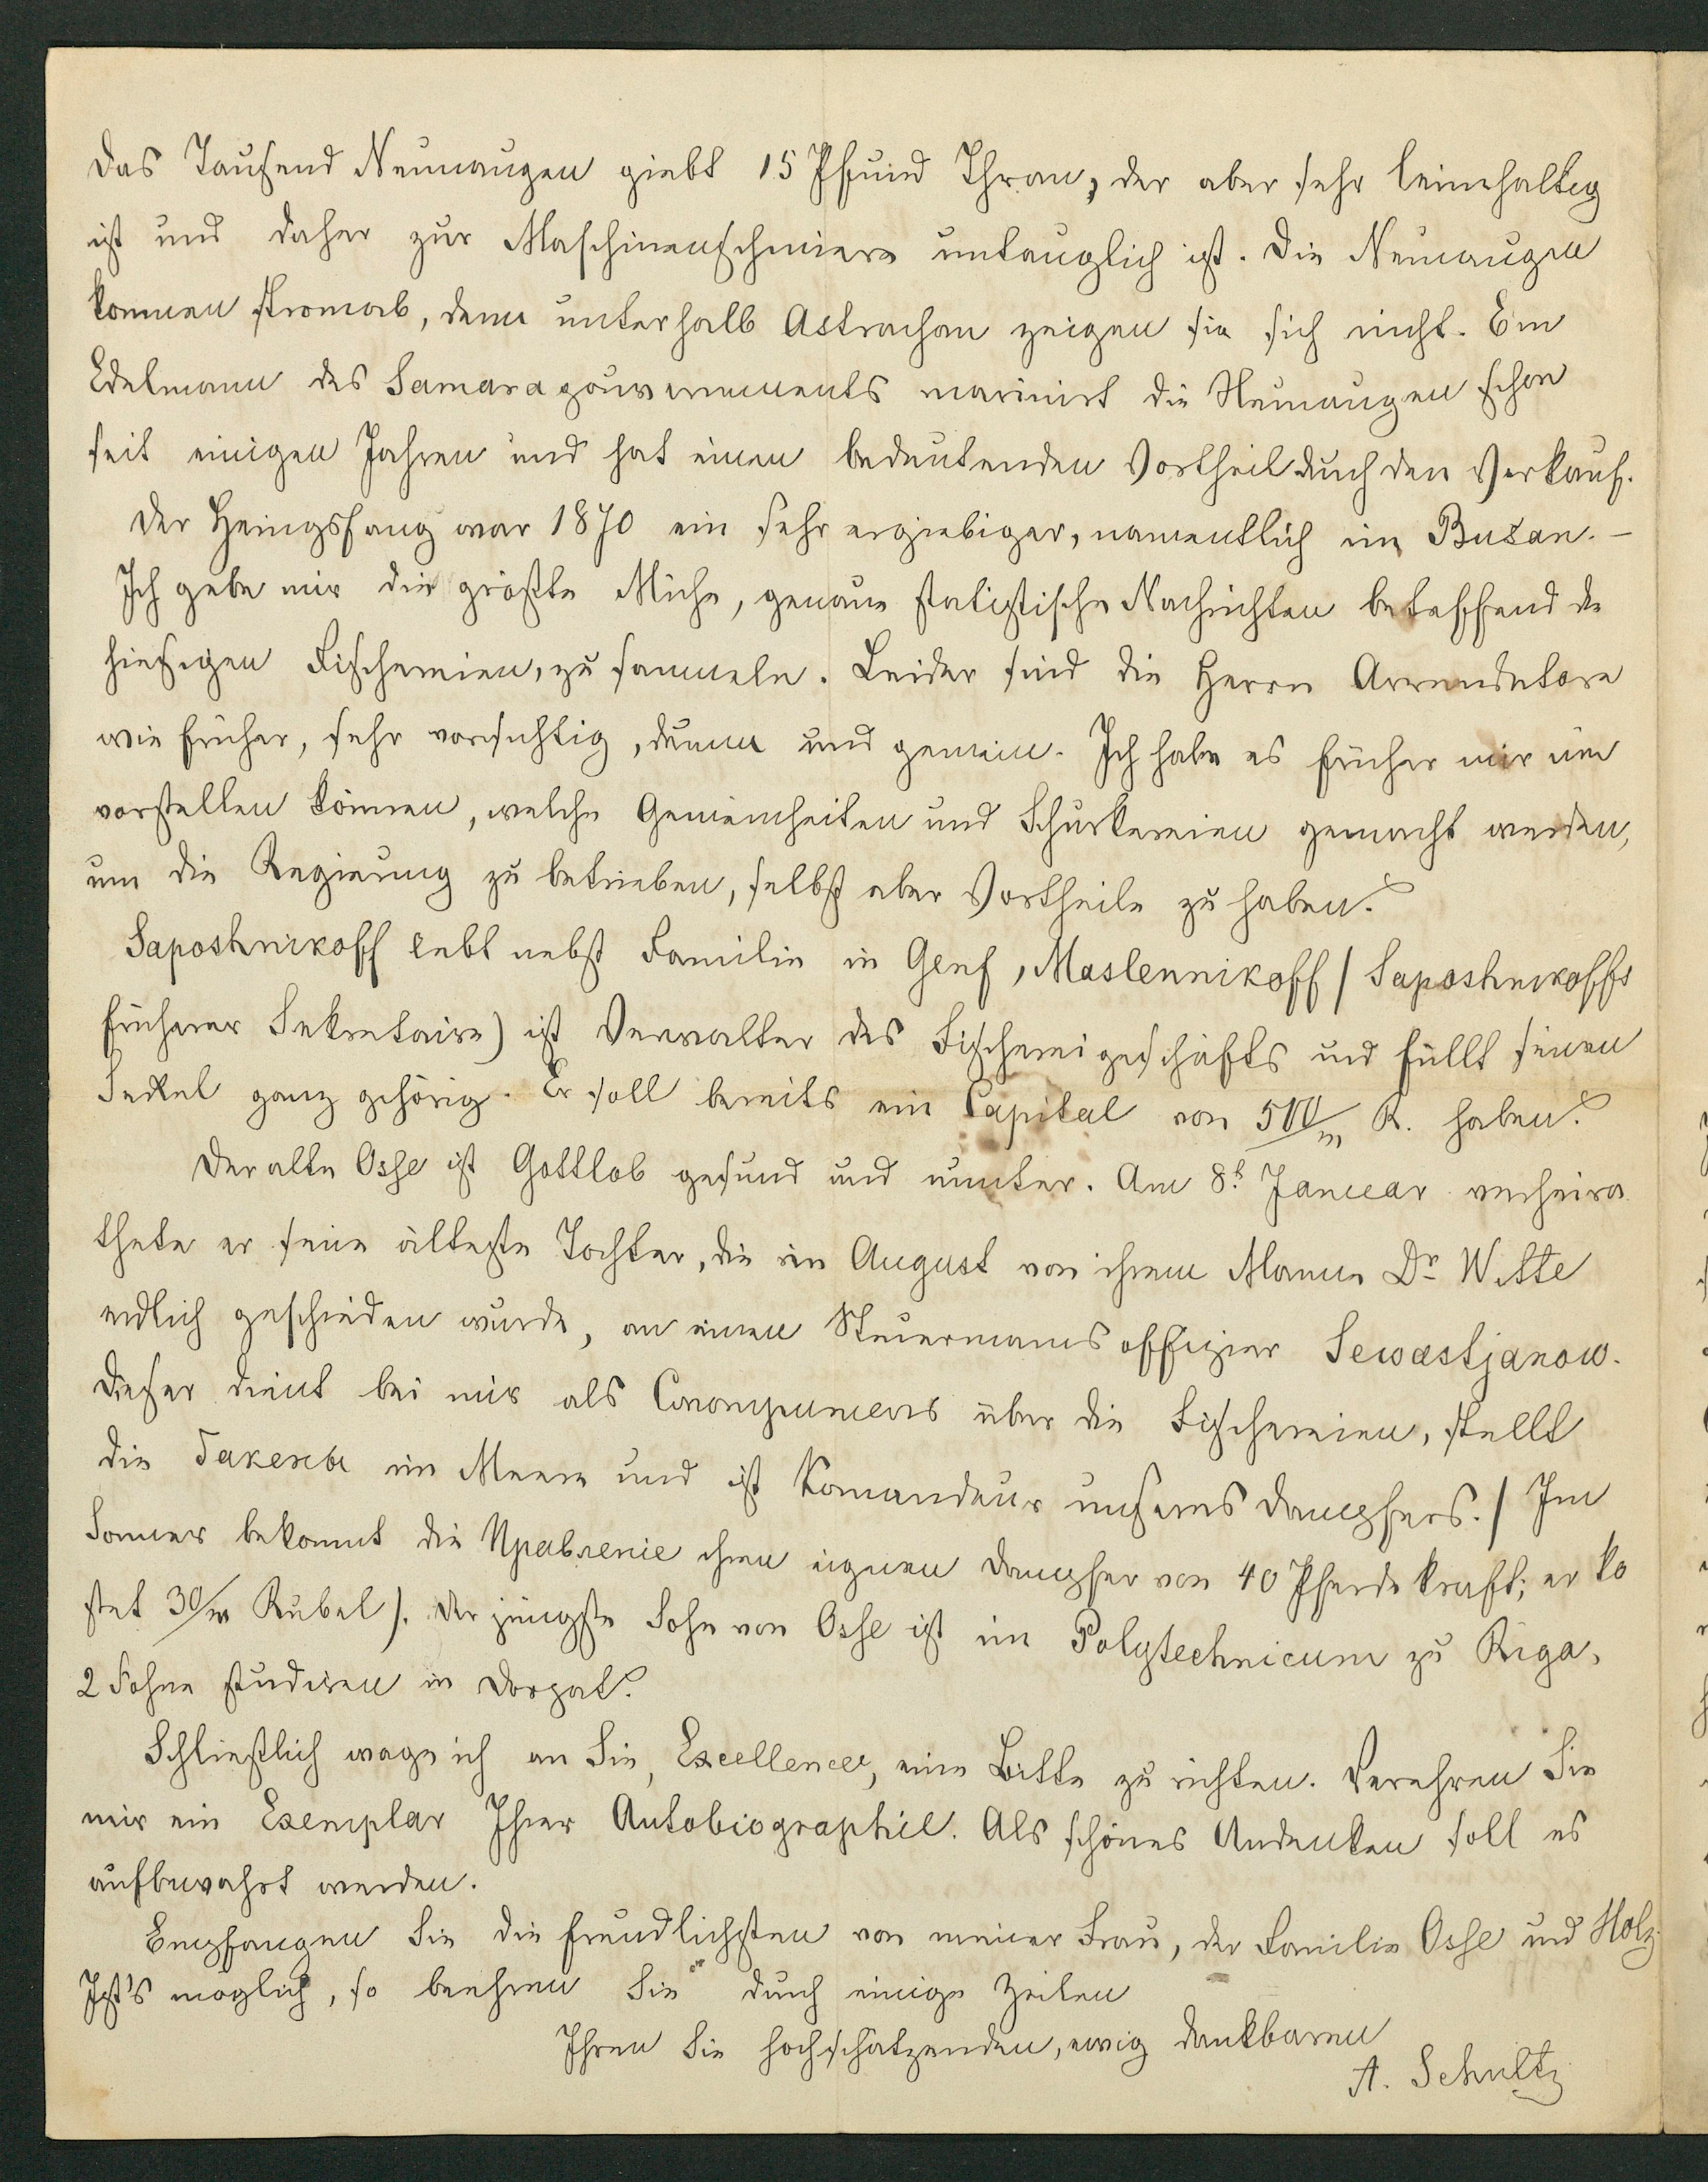 Das Tausend Neunaugen giebt 15 Pfund Thran, der aber sehr leimhaltig
ist und daher zur Maschinenschmiere untauglich ist. Die Neunaugen
kommen stromab, denn unterhalb Astrachan zeigen sie sich nicht. Ein
Edelmann des Samaragouvernements marinirt die Neunaugen schon
seit einigen Jahren und hat einen bedeutenden Vortheil durch den Verkauf.
Der Heringsfang war 1870 ein sehr ergiebiger, namentlich im Busan. –
Ich gebe mir die größte Mühe, genaue statistische Nachrichten betreffend die
hiesigen Fischereien, zu sammeln. Leider sind die Herrn Arrendatore
wie früher, sehr vorsichtig, dumm und gemein. Ich habe es früher mir nie
vorstellen können, welche Gemeinheiten und Schurkereien gemacht werden,
um die Regierung zu betrieben, selbst aber Vortheile zu haben.
Saposhnikoff lebt nebst Familie in Genf, Maslennikoff / Saposhnikoffs
früherer Sekretaire) ist Verwalter des Fischereigeschäfts und füllt seinen
Seckel ganz gehörig. Er soll bereits ein Capital von 500/m R. haben.
Der alte Osse ist Gottlob gesund und munter. Am 8t Januar verheira
thete er seine älteste Tochter, die im August von ihrem Manne Dr Witte
endlich geschieden wurde, an einen Steuermannsoffizier Sewastjanow.
Dieser dient bei mir als über die Fischereien, stellt
die im Meere und ist Komandeur unseres Dampfers. / Im
Sommer bekommt die Управление ihren eignen Dampfer von 40 Pferdekraft; er ko
stet 30/m Rubel). Der jüngste Sohn von Osse ist im Polytechnicum zu Riga,
2 Söhne studiren in Dorpat.
Schließlich wage ich an Sie, Excellence, eine Bitte zu richten. Verehren Sie
mir ein Exemplar Ihrer Autobiographie. Als schönes Andenken soll es
aufbewahrt werden.
Empfangen Sie die freundlichsten von meiner Frau, der Familie Osse und Holz.
Ist's möglich, so beehren Sie durch einige Zeilen
Ihren Sie hochschätzenden, ewig dankbaren
A. Schultz